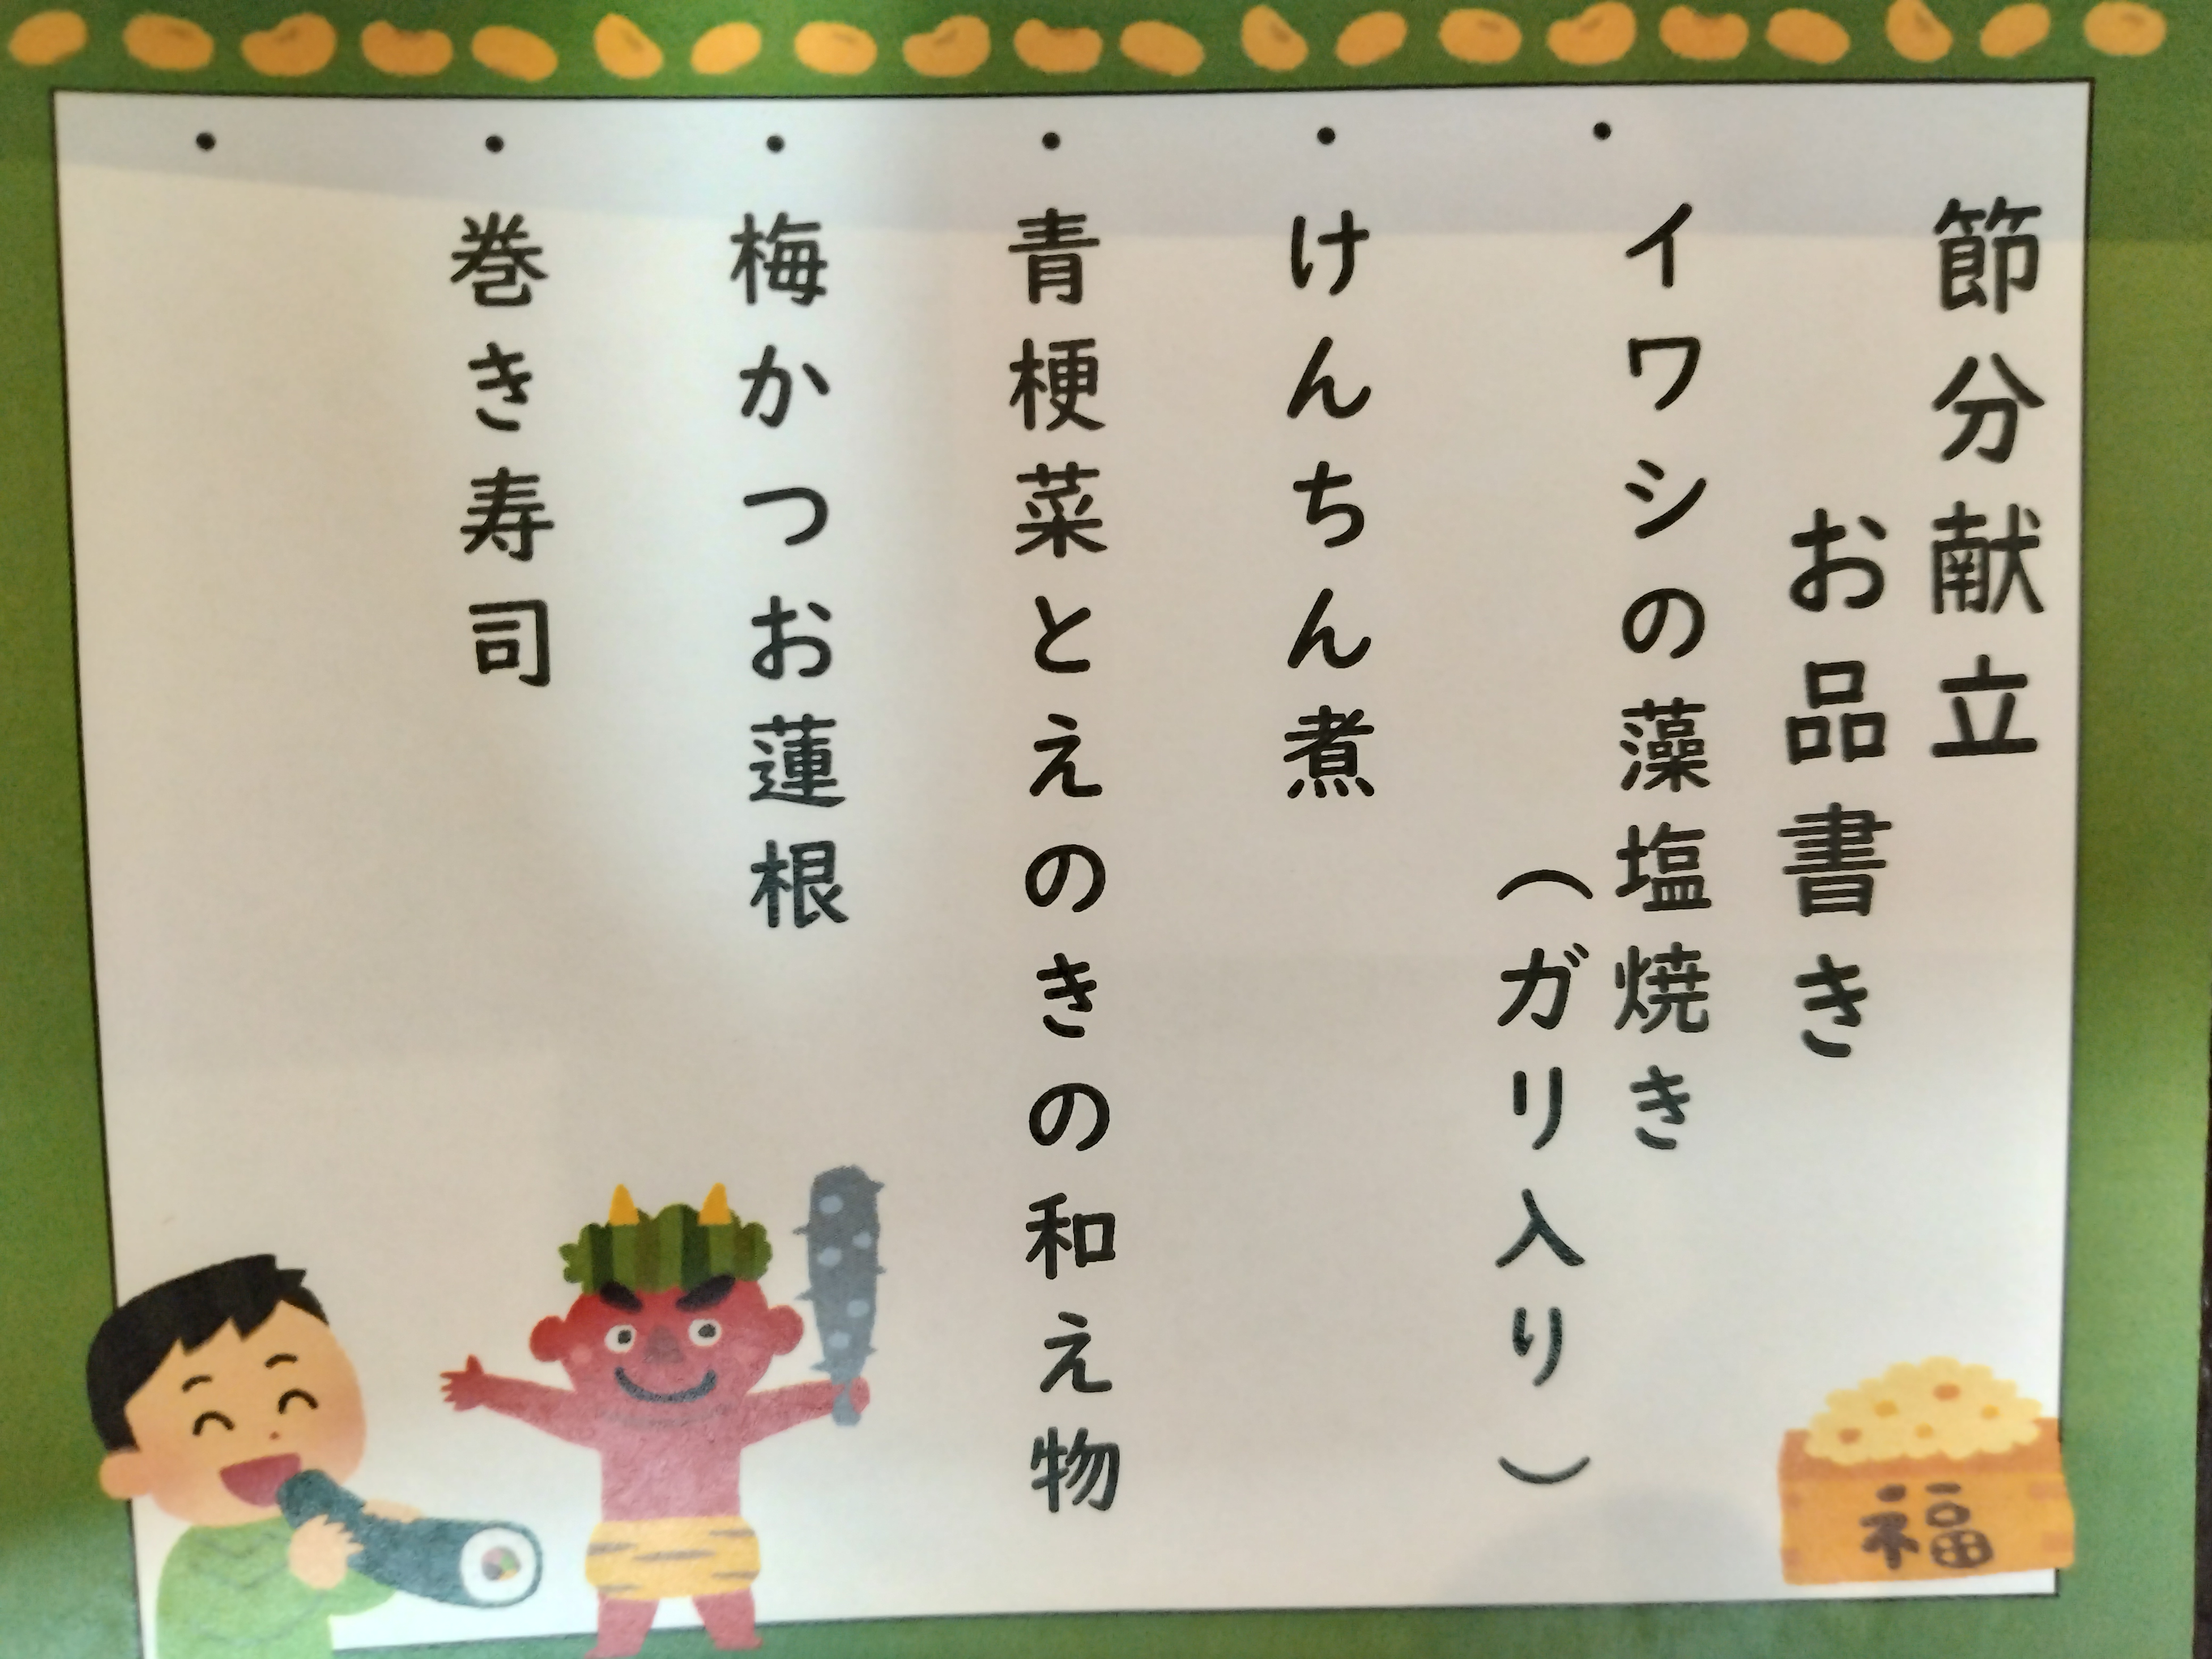 節分献立
お品書き
・イワシの藻塩焼き
（ガリ入り）
・けんちん煮
・青梗菜とえのきの和え物
・梅かつお蓮根
・巻き寿司
・
福